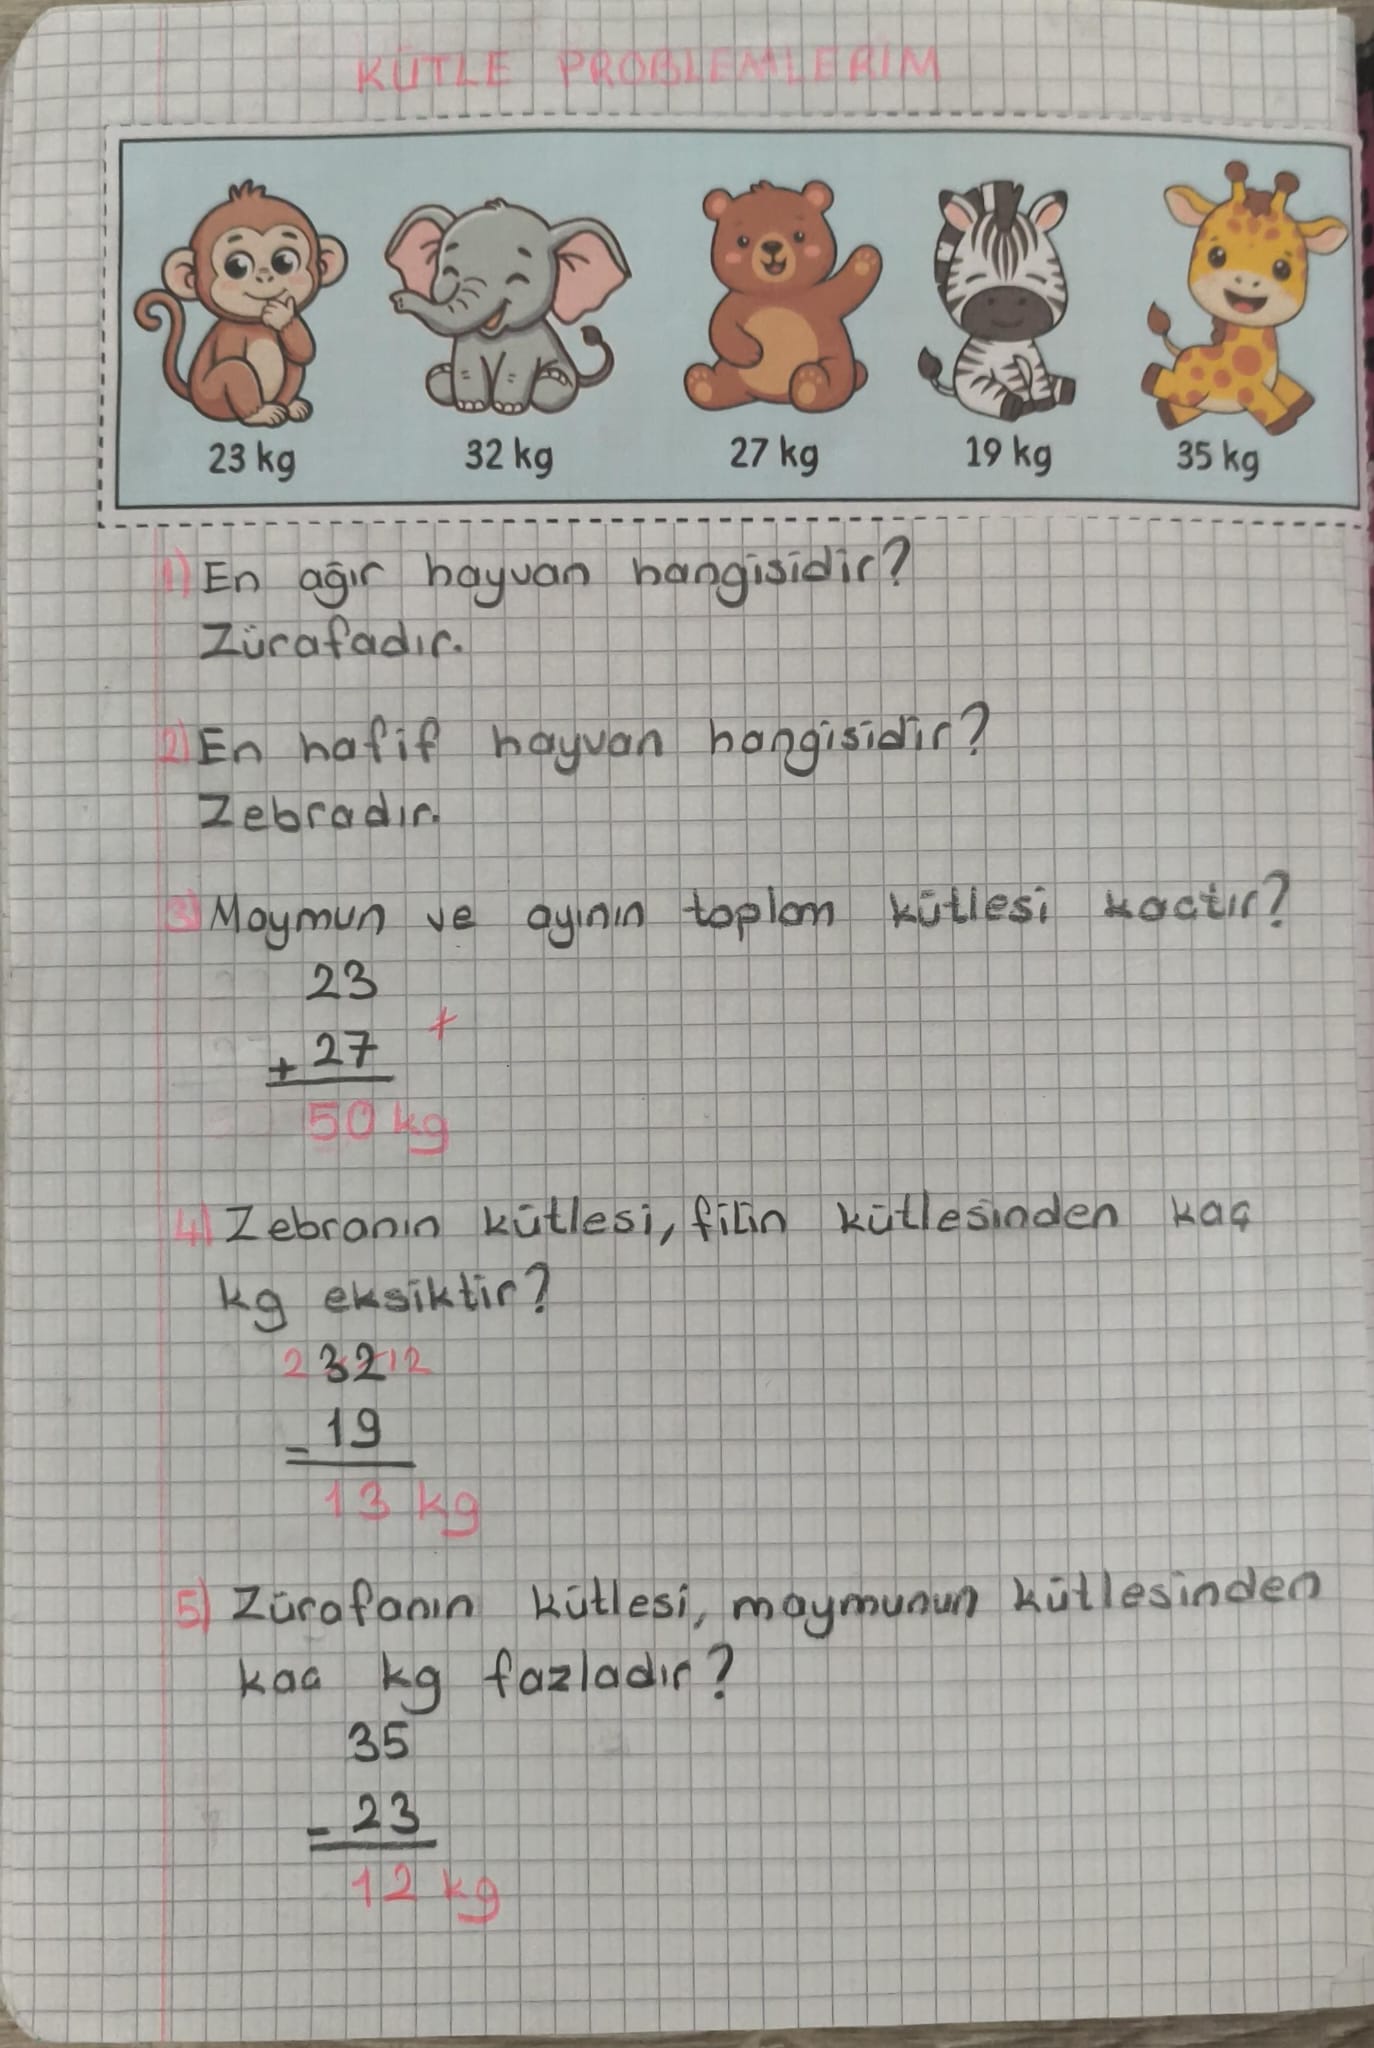 KÜTLE PROBLEMLERİM
23 kg 32 kg 27 kg 19 kg 35 kg
1) En ağır hayvan hangisidir?
Zürafadır.
2) En hafif hayvan hangisidir?
Zebradır.
3) Maymun ve ayının toplam kütlesi kactır?
23
+
+ 27
50 kg
4) Zebranın kütlesi, filin kütlesinden kaç
kg eksiktir?
2 32 12
- 19
13 kg
5) Zürafanın kütlesi, maymunun kütlesinden
kac kg fazladır?
35
- 23
12 kg